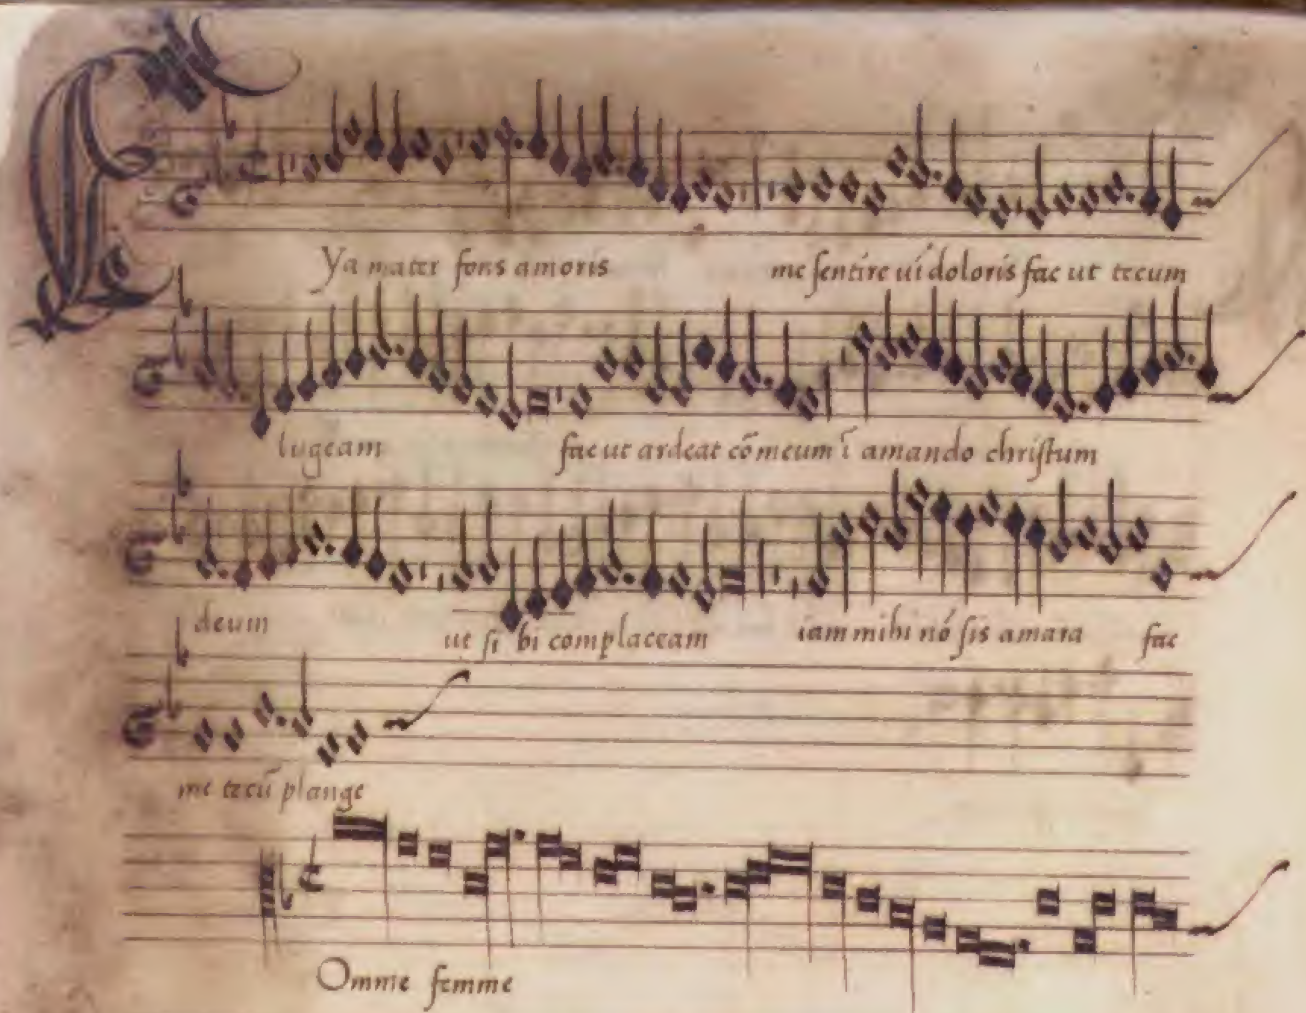 Eya mater fons amoris me sentire ui doloris fac ut tecum
lugeam fac ut ardeat cō meum ī amando christum
deum ut si bi complaceam iam mihi nō sis amara fac
me tecū plange
Omme femme